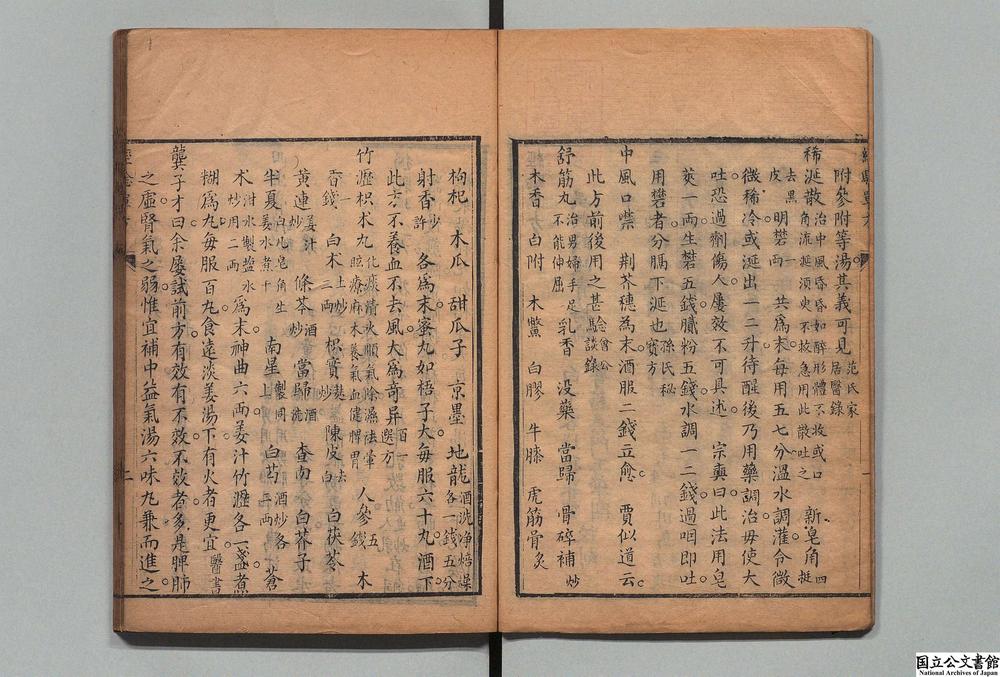 附參附等湯其義可見 范氏家居醫錄
稀涎散 治中風昏昏如醉形體不收或口角流涎須臾不拔急用此散吐之 新皂角 四挺
去黑皮 明礬 一兩 共為末每用五七分溫水調灌令微
微稀冷或涎出一二升待醒後乃用藥調治毋使大
吐恐過劑傷人屢效不可具述 宗奭曰此法用皂
莢一兩生礬五錢膩粉五錢水調一二錢過咽即吐
用礬者分膈下涎也 孫氏秘寶方
中風口噤 荆芥穗為末酒服二錢立愈 賈似道云
此方前後用之甚驗 曾公談錄
舒筋丸 治男婦手足不能伸屈 乳香 沒藥 當歸 骨碎補 炒
木香 白附 木鱉 白膠 牛膝 虎筋骨 炙
枸杞 木瓜 甜瓜子 京墨 地龍 酒洗净焙燥各一錢五分
射香 少許 各為末蜜丸如梧子大每服六十丸酒下
此方不養血不去風大為奇异 選方
竹瀝枳术丸 化痰清火順氣除濕祛暈眩療麻木養氣血健脾胃 人參 五錢 木
香 一錢 白术 土炒二兩 枳實 麸炒 陳皮 去白 白茯苓
黄連 姜汁炒 條芩 酒炒 當歸 酒洗 查肉 白芥子
半夏 白凡皂角生姜水煮十 南星 製同上 白芍 酒炒各一兩 蒼
术 泔水製塩水炒用二兩 為末神曲六兩姜汁竹瀝各一盞煮
糊為丸每服百丸食遠淡姜湯下有火者更宜 醫書
龔子才曰余屡試前方有效有不效不效者多是脾肺
之虚腎氣之弱惟宜補中益氣湯六味丸兼而進之
国立公文書館
National Archives of Japan